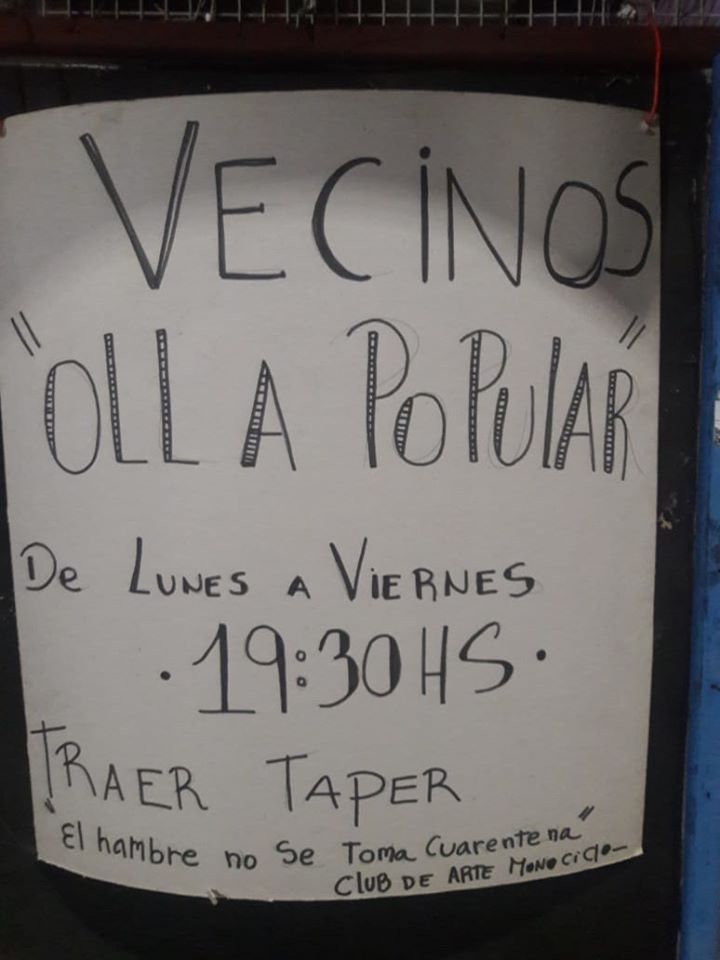 VECINOS
"OLLA POPULAR"
De LUNES A VIERNES
·19:30HS·
TRAER TAPER
"El hambre no Se Toma Cuarentena"
CLUB DE ARTE MONOCICLO